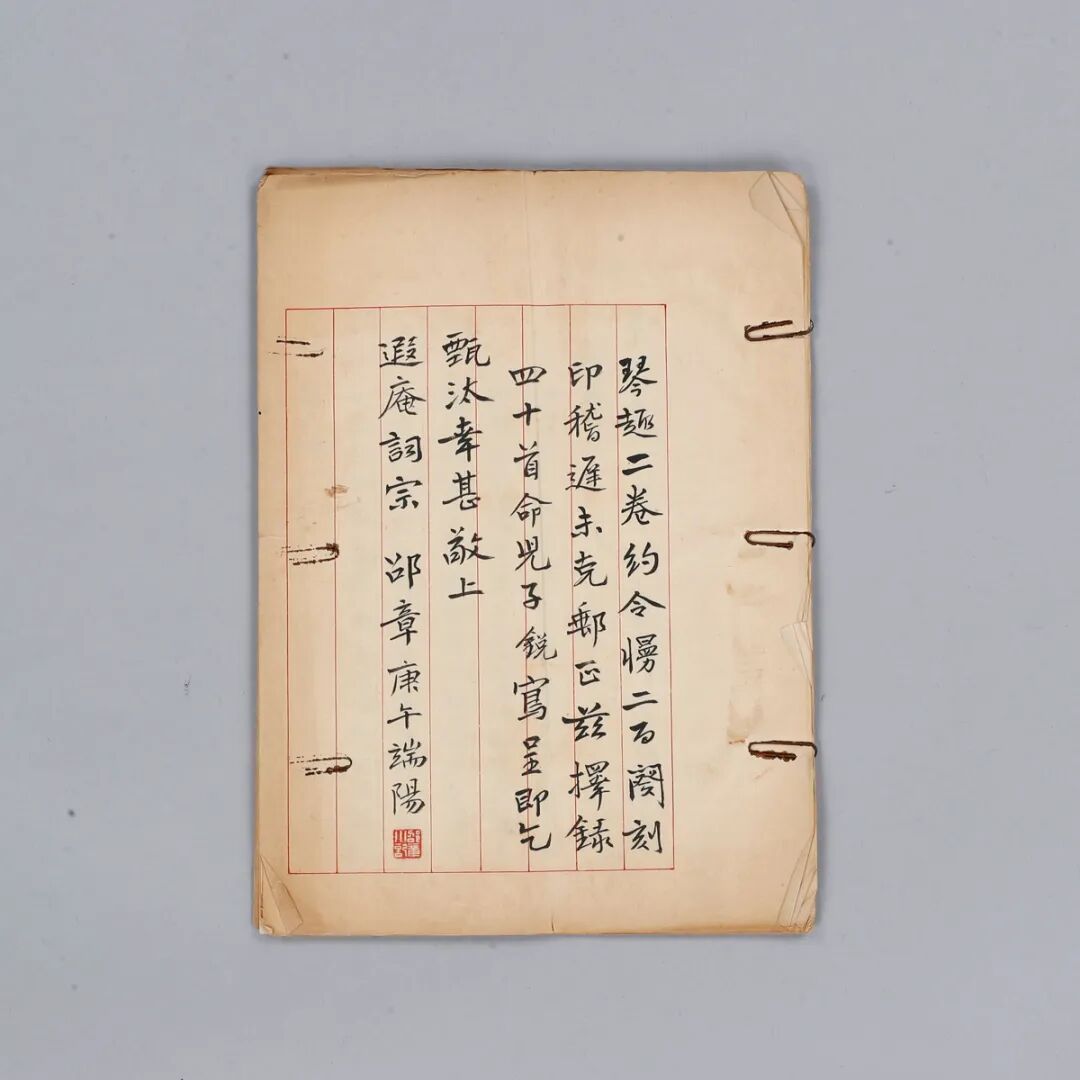 琴趣二卷約令慢二百闋刻
印稽遲未克郵正茲擇錄
四十首命兒子銳寫呈即乞
甄汰幸甚敬上
遐庵詞宗 邵章 庚午端陽